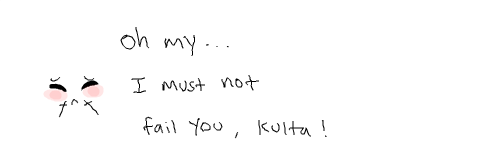 Oh my...
I must not
fail you, Kulta!